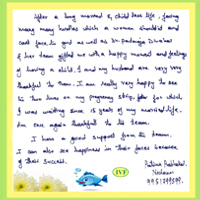 After a long married & child less life, facing
many many hurdles which a women shouldn't and
can't face, to god as well as Dr. Padmaja Diwakar
& her team gifted me with a happy moment and feelings
of having a child. I and my husband are very very
thankful to them. I am really very happy to see
the two lines on my pregnancy strip, for which
I was waiting since 15 years of my married life.
Am once again thankful to the team.
I have a good support from the team.
I can also see happiness in their faces because
of their success.
IVF